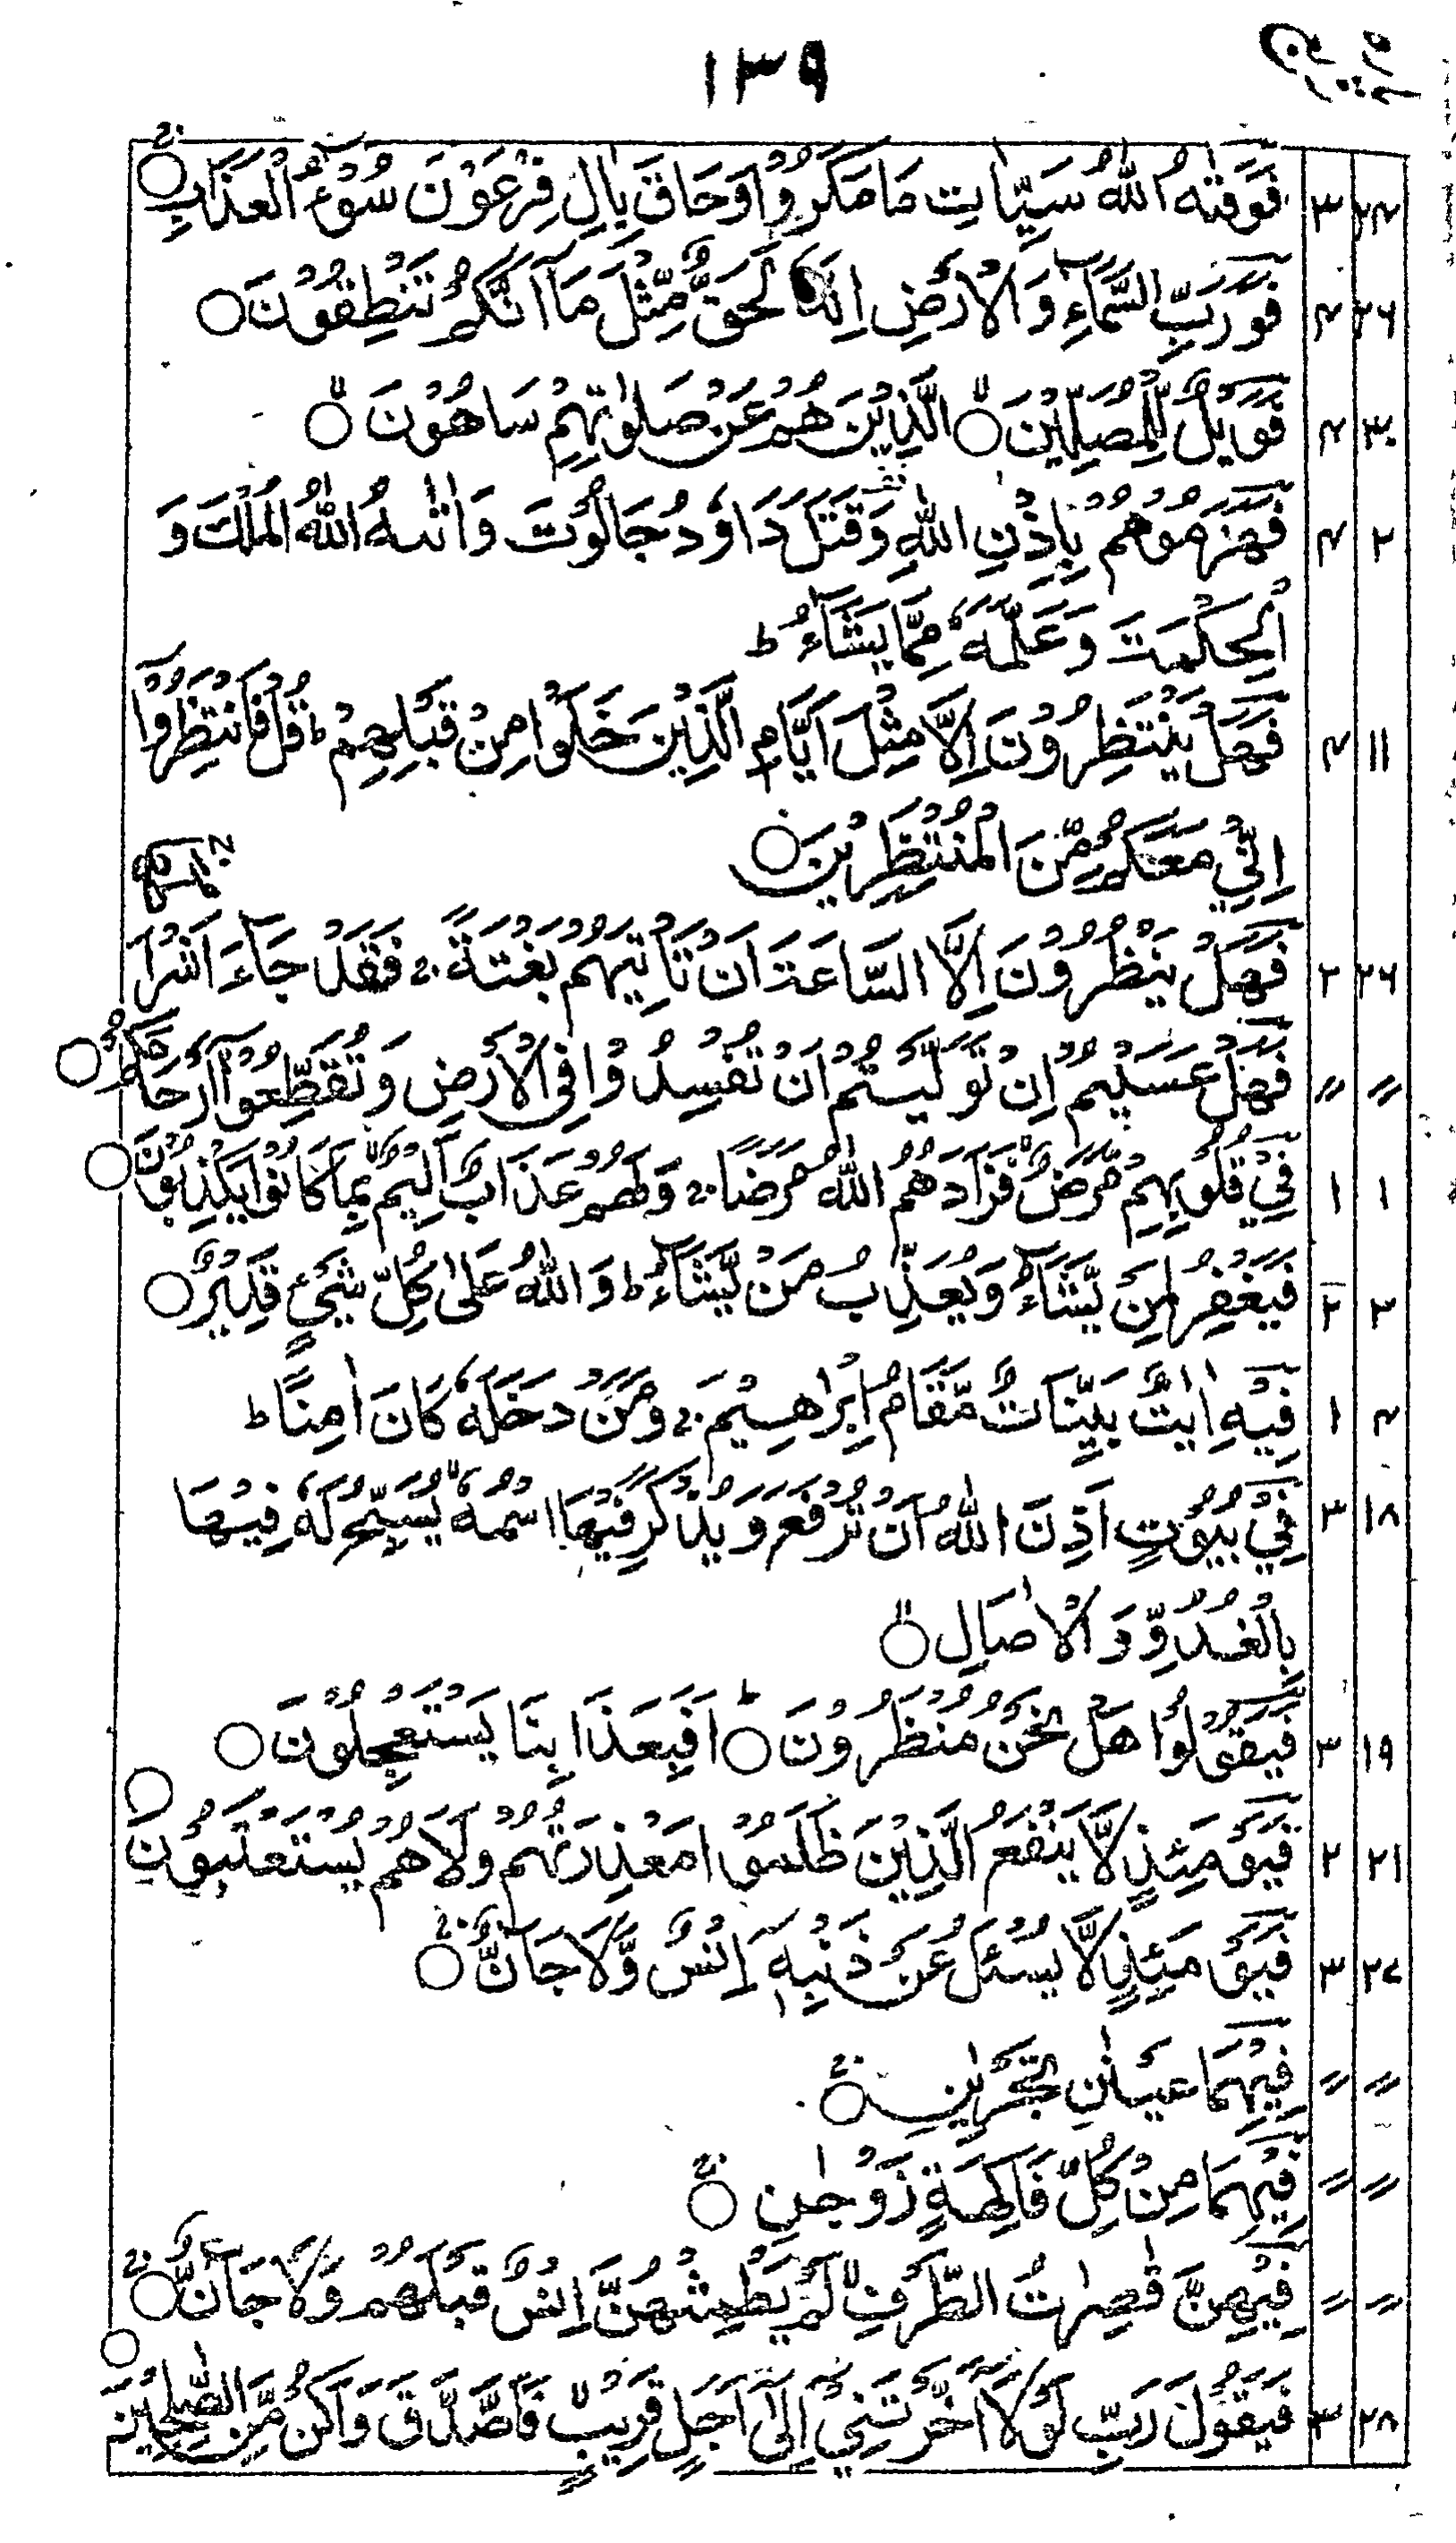 ١٣٩
٢٤ ٣ فَوَقٰىهُ اللّٰهُ سَيِّاٰتِ مَا مَكَرُوْا وَحَاقَ بِاٰلِ فِرْعَوْنَ سُوْٓءُ الْعَذَابِ
٢٦ ٤ فَوَرَبِّ السَّمَآءِ وَالْاَرْضِ اِنَّهٗ لَحَقٌّ مِّثْلَ مَآ اَنَّكُمْ تَنْطِقُوْنَ
٣٠ ٤ فَوَيْلٌ لِّلْمُصَلِّيْنَ الَّذِيْنَ هُمْ عَنْ صَلَوٰتِهِمْ سَاهُوْنَ
٢ ٤ فَهَزَمُوْهُمْ بِاِذْنِ اللّٰهِ وَقَتَلَ دَاوٗدُ جَالُوْتَ وَاٰتٰىهُ اللّٰهُ الْمُلْكَ وَ
الْحِكْمَتَ وَعَلَّمَهٗ مِمَّا يَشَآءُ ط
١١ ٤ فَهَلْ يَنْتَظِرُوْنَ اِلَّا مِثْلَ اَيَّامِ الَّذِيْنَ خَلَوْا مِنْ قَبْلِهِمْ ط قُلْ فَانْتَظِرُوْٓا
اِنِّيْ مَعَكُمْ مِّنَ الْمُنْتَظِرِيْنَ
٢٦ ٢ فَهَلْ يَنْظُرُوْنَ اِلَّا السَّاعَةَ اَنْ تَاْتِيَهُمْ بَغْتَةً ج فَقَدْ جَآءَ اَشْرَا
〃 〃 فَهَلْ عَسَيْتُمْ اِنْ تَوَلَّيْتُمْ اَنْ تُفْسِدُوْا فِي الْاَرْضِ وَتُقَطِّعُوْٓا اَرْحَامَكُمْ
١ ١ فِيْ قُلُوْبِهِمْ مَّرَضٌ فَزَادَهُمُ اللّٰهُ مَرَضًا ج وَلَهُمْ عَذَابٌ اَلِيْمٌ بِمَا كَانُوْا يَكْذِبُوْنَ
٣ ٢ فَيَغْفِرُ لِمَنْ يَّشَآءُ وَيُعَذِّبُ مَنْ يَّشَآءُ ط وَاللّٰهُ عَلٰى كُلِّ شَيْءٍ قَدِيْرٌ
٤ ١ فِيْهِ اٰيٰتٌ بَيِّنَاتٌ مَّقَامُ اِبْرٰهِيْمَ ج وَمَنْ دَخَلَهٗ كَانَ اٰمِنًا ط
١٨ ٣ فِيْ بُيُوْتٍ اَذِنَ اللّٰهُ اَنْ تُرْفَعَ وَيُذْكَرَ فِيْهَا اسْمُهٗ يُسَبِّحُ لَهٗ فِيْهَا
بِالْغُدُوِّ وَالْاٰصَالِ
١٩ ٣ فَيَقُوْلُوْا هَلْ نَحْنُ مُنْظَرُوْنَ ط اَفَبِعَذَابِنَا يَسْتَعْجِلُوْنَ
٢١ ٢ فَيَوْمَئِذٍ لَّا يَنْفَعُ الَّذِيْنَ ظَلَمُوْا مَعْذِرَتُهُمْ وَلَا هُمْ يُسْتَعْتَبُوْنَ
٢٧ ٣ فَيَوْمَئِذٍ لَّا يُسْئَلُ عَنْ ذَنْبِهٖٓ اِنْسٌ وَّلَا جَآنٌّ
〃 〃 فِيْهِمَا عَيْنٰنِ تَجْرِيٰنِ
〃 〃 فِيْهِمَا مِنْ كُلِّ فَاكِهَةٍ زَوْجٰنِ
〃 〃 فِيْهِنَّ قٰصِرٰتُ الطَّرْفِ لَمْ يَطْمِثْهُنَّ اِنْسٌ قَبْلَهُمْ وَلَا جَآنٌّ
٢٨ ٣ فَيَقُوْلَ رَبِّ لَوْلَآ اَخَّرْتَنِيْٓ اِلٰٓى اَجَلٍ قَرِيْبٍ فَاَصَّدَّقَ وَاَكُنْ مِّنَ الصّٰلِحِيْنَ